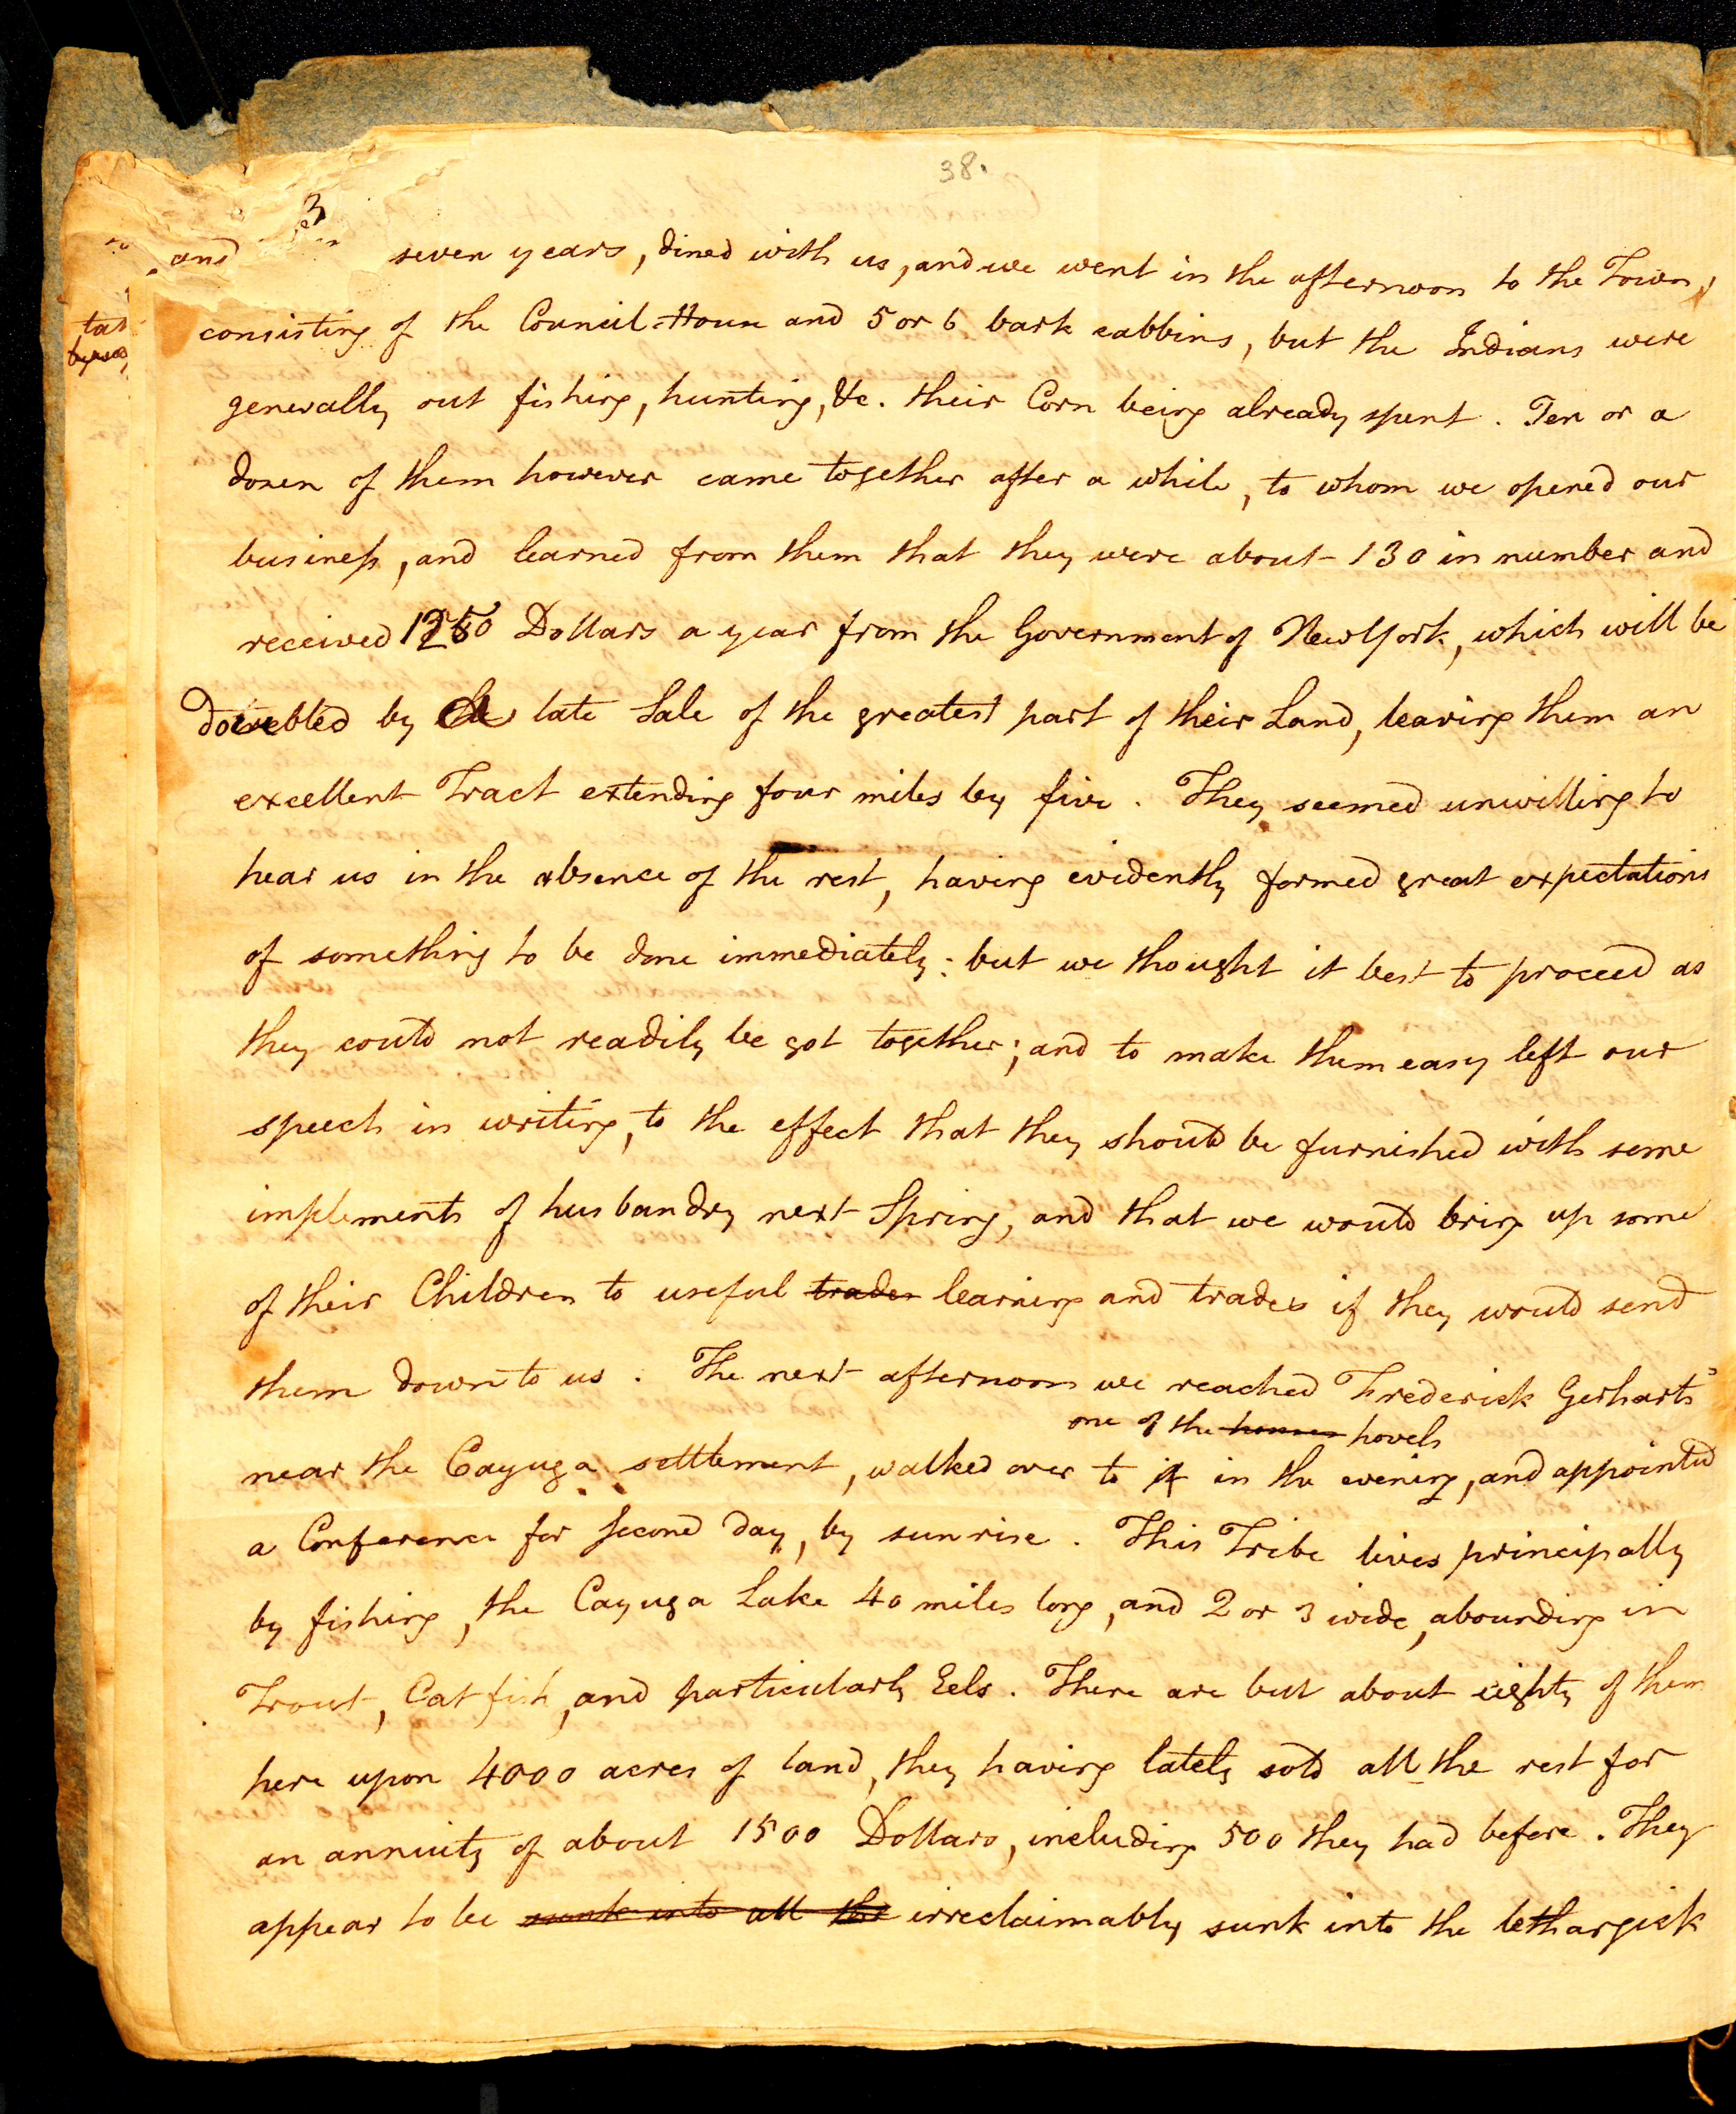 38.
3
and seven years, dined with us, and we went in the afternoon to the Town,
consisting of the Council-House and 5 or 6 bark cabbins, but the Indians were
generally out fishing, hunting, &c. their Corn being already spent. Ten or a
dozen of them however came together after a while, to whom we opened our
business, and learned from them that they were about 130 in number and
received Dollars a year from the Government of New York, which will be
doubled by late Sale of the greatest part of their Land, leaving them an
excellent Tract extending four miles by five. They seemed unwilling to
hear us in the absence of the rest, having evidently formed great expectations
of something to be done immediately: but we thought it best to proceed as
they could not readily be got together; and to make them easy left our
speech in writing, to the effect that they should be furnished with some
implements of husbandry next Spring, and that we would bring up some
of their Children to useful trades learning and trades if they would send
them down to us. The next afternoon we reached Frederick Gerharts
one of the houses hovels
near the Cayuga settlement, walked over to it in the evening, and appointed
a Conference for second day, by sunrise. This Tribe lives principally
by fishing, the Cayuga Lake 40 miles long, and 2 or 3 wide, abounding in
Trout, Cat fish, and particularly Eels. There are but about eighty of them
here upon 4000 acres of land, they having lately sold all the rest for
an annuity of about 1500 Dollars, including 500 they had before. They
appear to be sunk into all the irreclaimably sunk into the lethargick